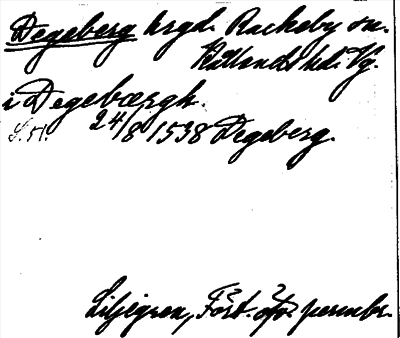 Degeberg hrgd. Rackeby sn.
Kållands hd. Vg.
i Degebærgh.
S.H. 24/8 1538 Degeberg.
Liljegren, Fört. öfv. permbr.